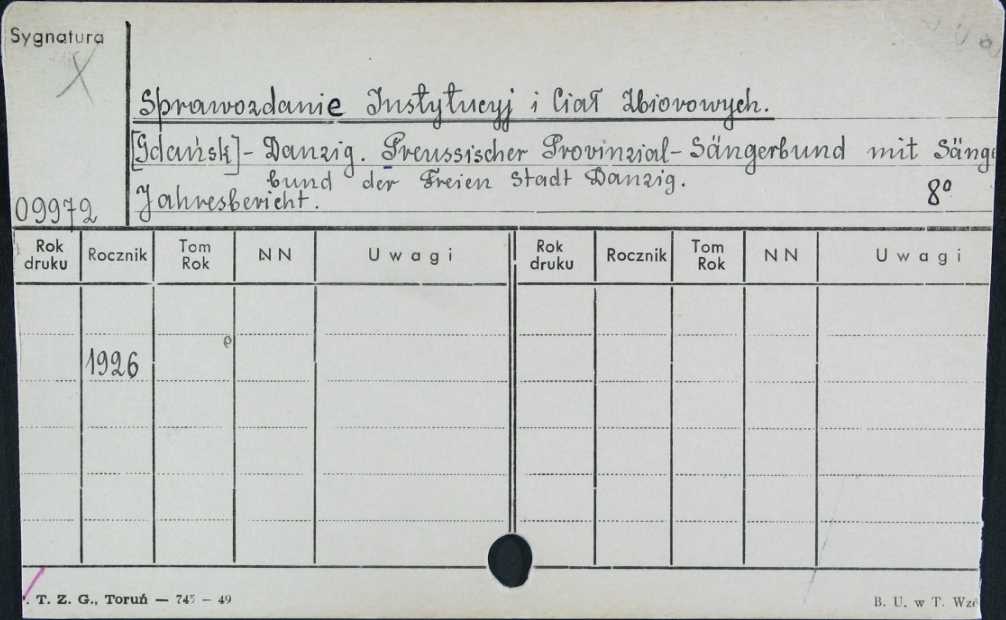 Sygnatura
X
Sprawozdanie Instytucyj i Ciał Zbiorowych.
[Gdańsk] - Danzig. Preussischer Provinzial-Sängerbund mit Sänge
bund der Freien Stadt Danzig.
Jahresbericht. 8º
09972
Rok druku Rocznik Tom Rok NN Uwagi Rok druku Rocznik Tom Rok NN Uwagi
1926
T. Z. G., Toruń — 745 — 49
B. U. w T. Wzó